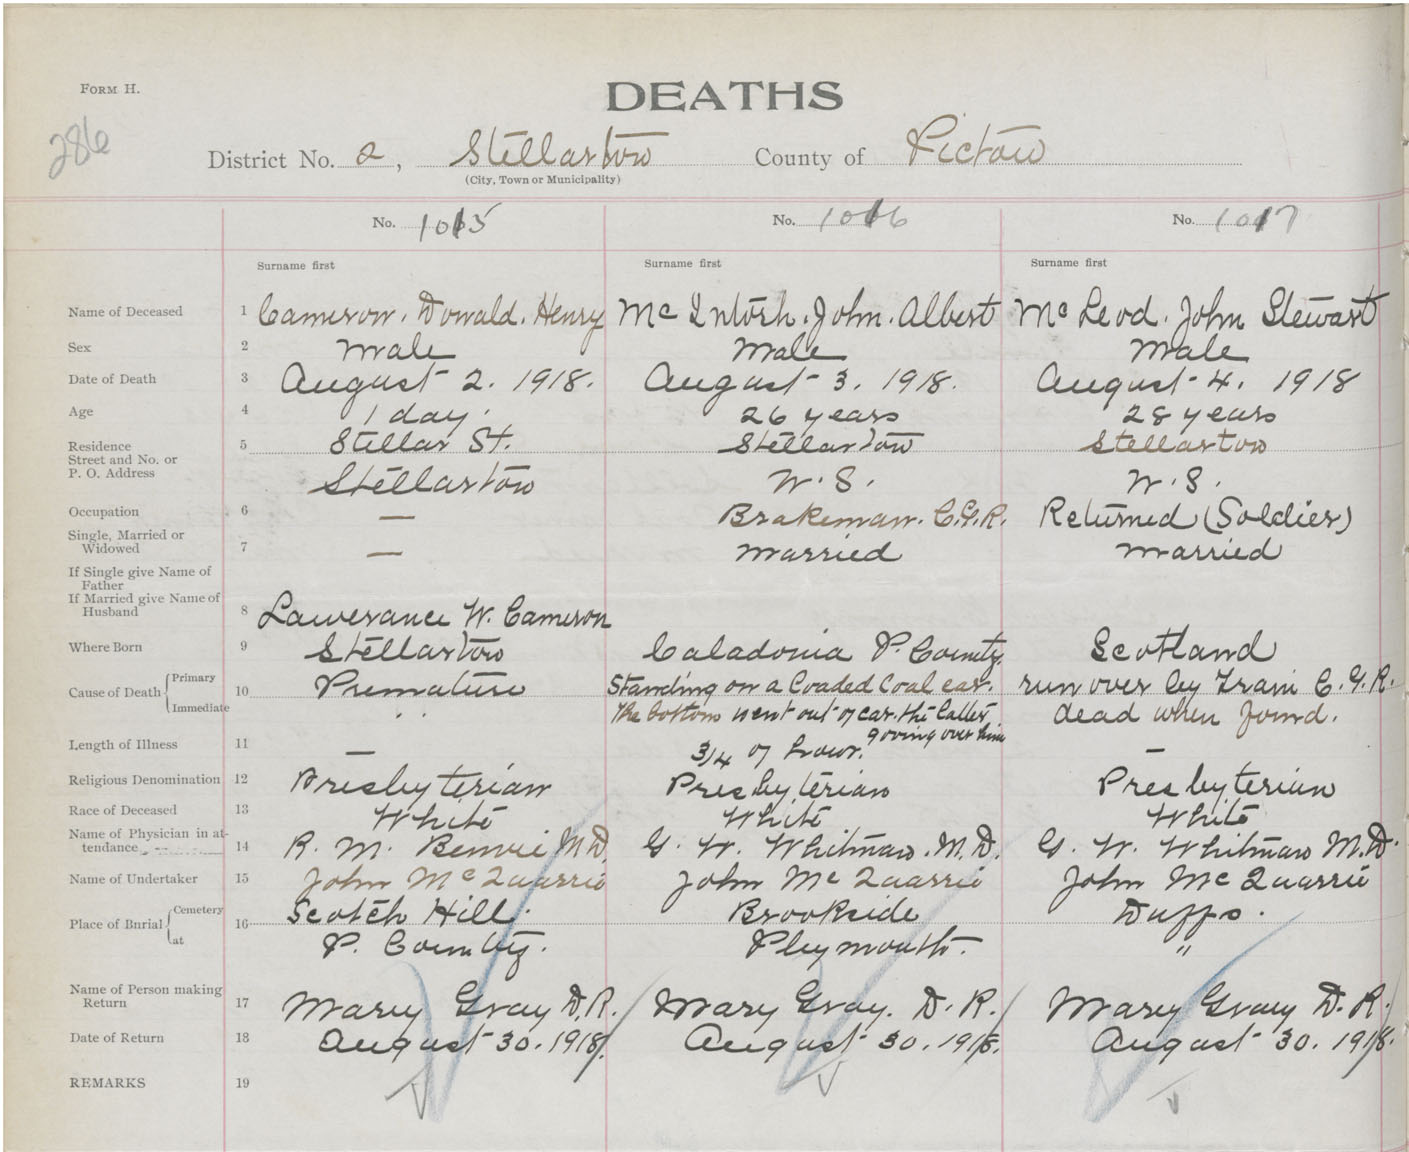 FORM H.
DEATHS
286
District No. 2, Stellarton County of Pictou
(City, Town or Municipality)
No. 1015 No. 1016 No. 1017
Surname first Surname first Surname first
Name of Deceased 1 Cameron. Donald. Henry McIntosh. John. Albert McLeod. John Stewart
Sex 2 Male Male Male
Date of Death 3 August 2. 1918. August 3. 1918. August 4. 1918
Age 4 1 day. 26 years 28 years
Residence 5 Stellar St. Stellarton Stellarton
Street and No. or
P. O. Address Stellarton W. S. W. S.
Occupation 6 — Brakeman. C.G.R. Returned (Soldier)
Single, Married or
Widowed 7 — Married Married
If Single give Name of
Father
If Married give Name of
Husband 8 Lawerance W. Cameron
Where Born 9 Stellarton Caladonia P. County. Scotland
Cause of Death { Primary 10 Premature Standing on a Loaded Coal car. run over by Train C.G.R.
Immediate " the bottom went out of car. the latter dead when found.
goving over him
Length of Illness 11 — 3/4 of hour. —
Religious Denomination 12 Presbyterian Presbyterian Presbyterian
Race of Deceased 13 White White White
Name of Physician in at-
tendance 14 R. M. Benvie M.D. G. W. Whitman. M.D. G. W. Whitman M.D.
Name of Undertaker 15 John McQuarrie John McQuarrie John McQuarrie
Place of Burial { Cemetery 16 Scotch Hill. Brookside Duffs.
at P. County. Plymouth. "
Name of Person making
Return 17 Mary Gray D.R. Mary Gray. D. R. Mary Gray D. R.
Date of Return 18 August 30. 1918. August 30. 1918. August 30. 1918.
REMARKS 19